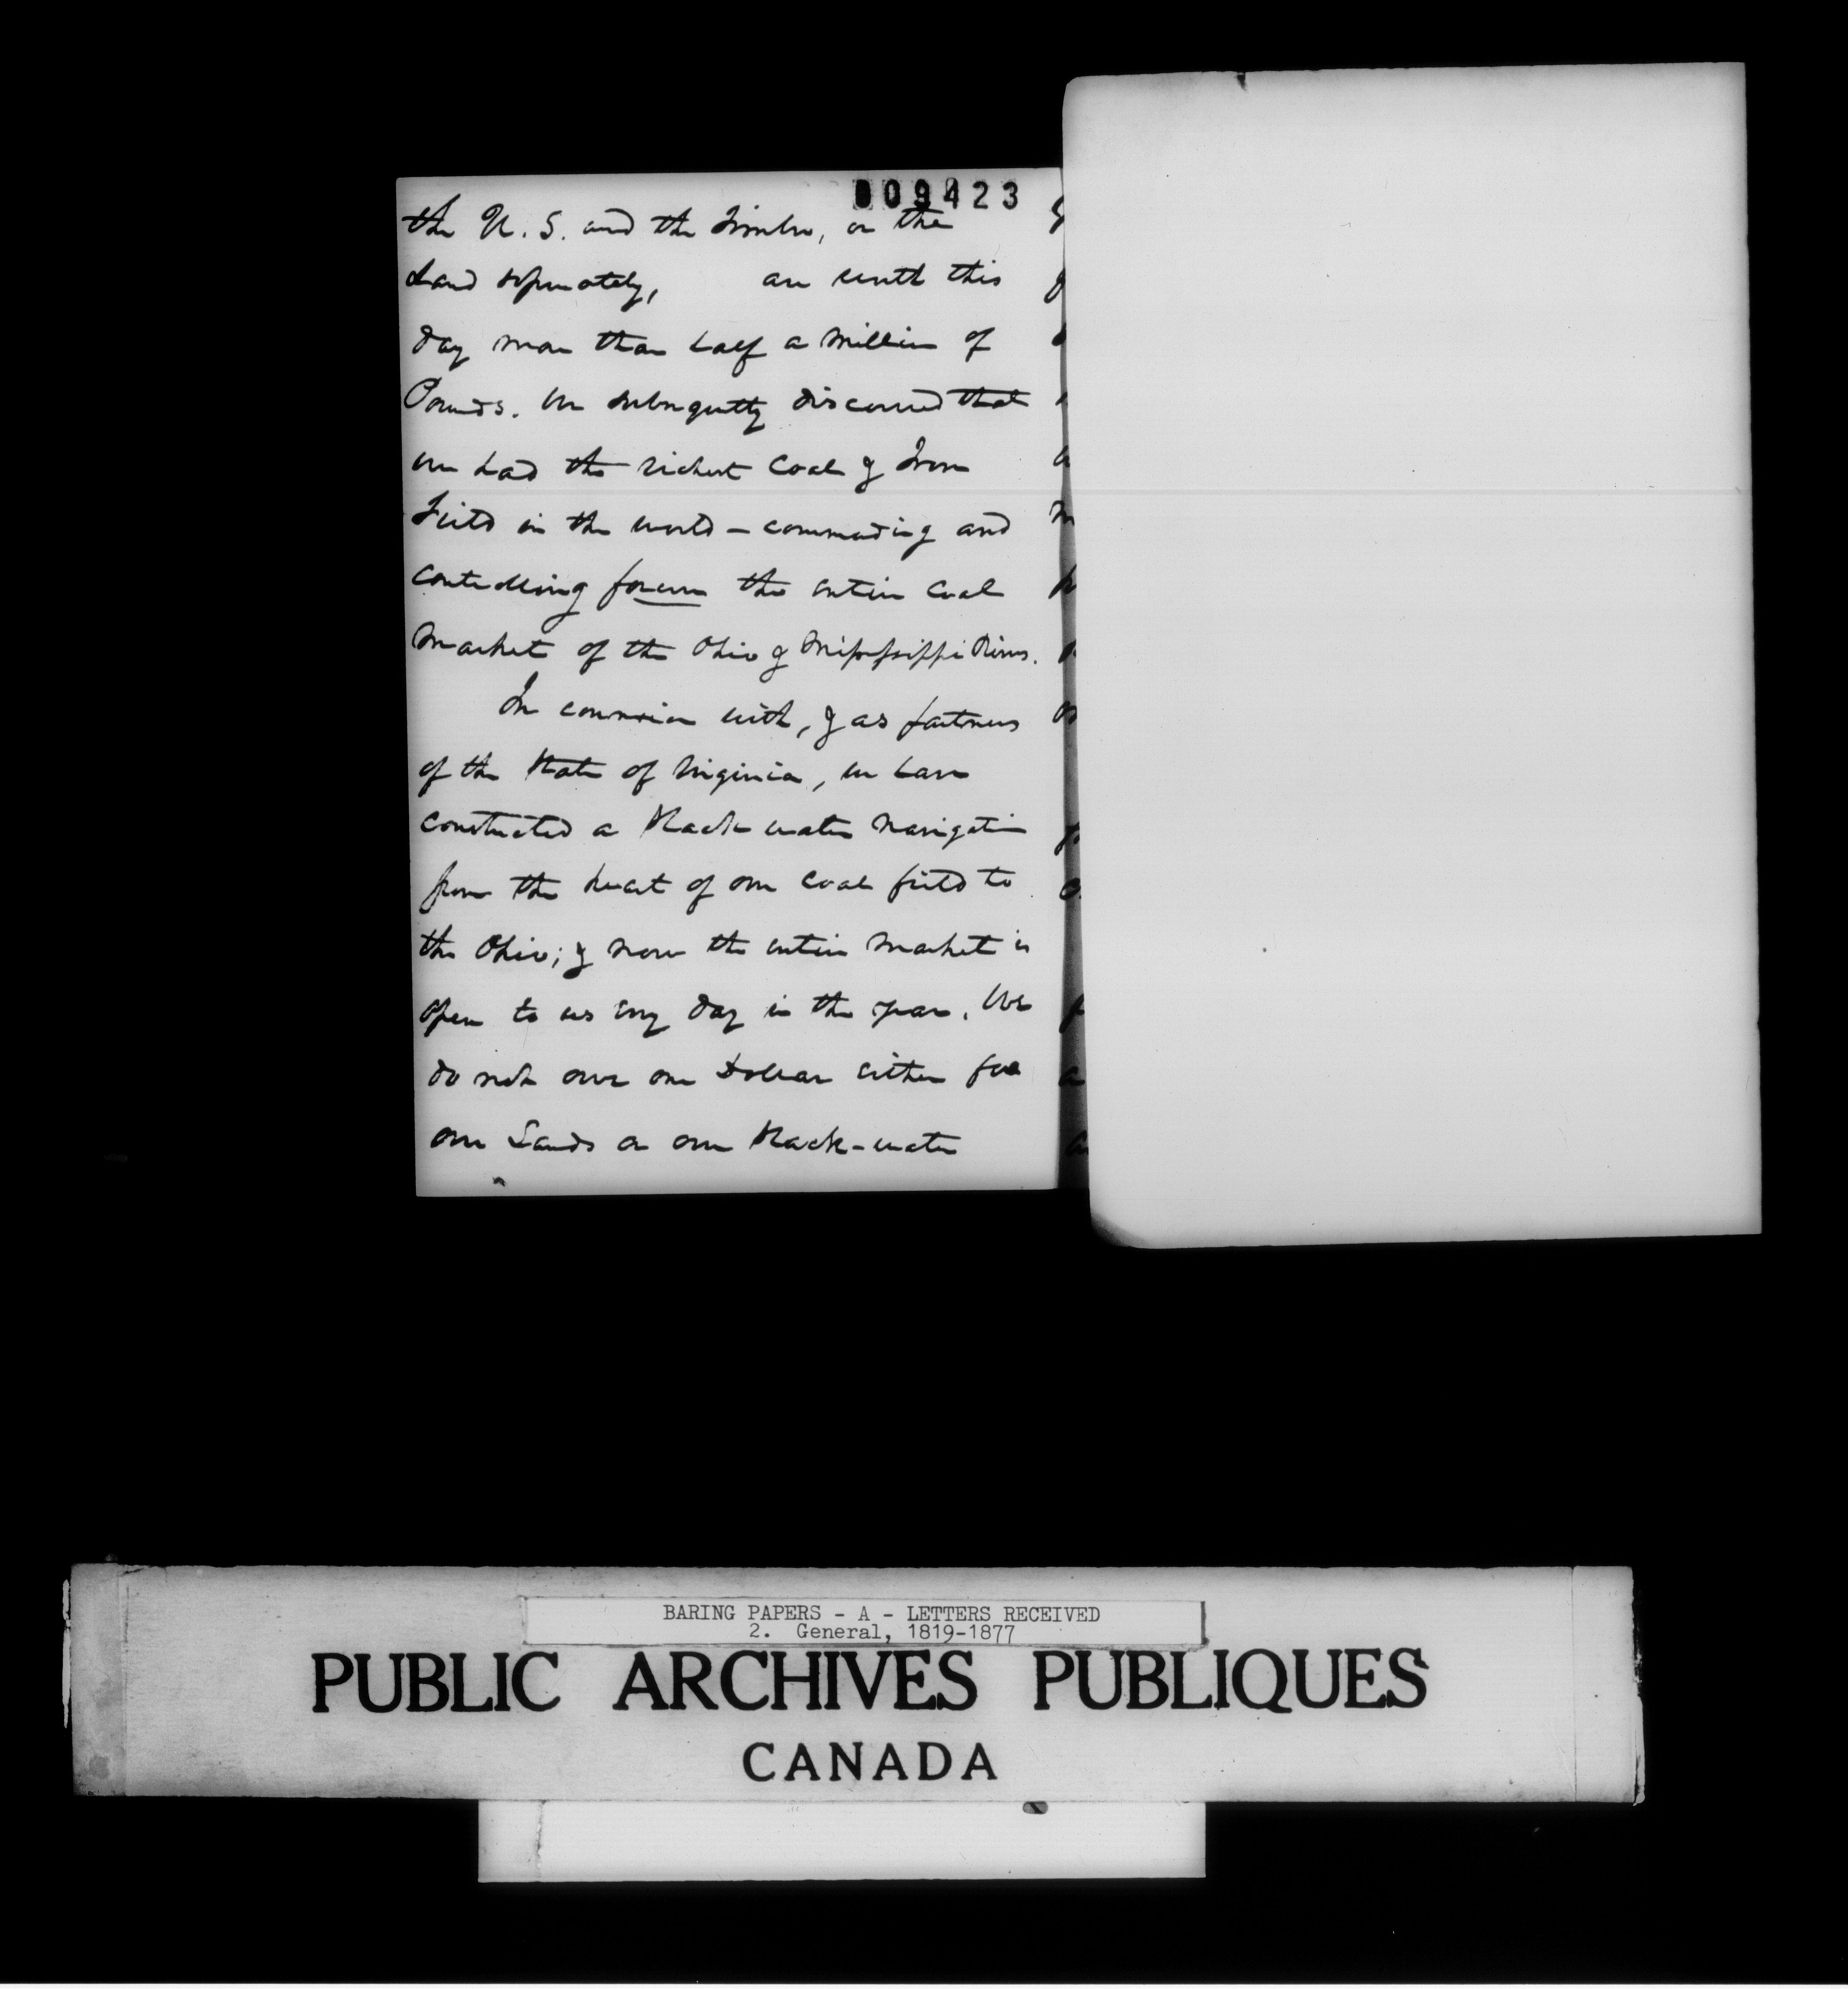 009423
the U. S. and the Timber, or the
Land seperately, are worth this
day more than half a million of
Pounds. We subsequently discovered that
we had the richest Coal & Iron
Field in the world – commanding and
controlling forever the entire Coal
Market of the Ohio & Mississippi Rivers.
In connexion with, & as partners
of the State of Virginia, we have
constructed a slack water navigation
from the heart of our coal field to
the Ohio; & now the entire market is
open to us every day in the year. We
do not owe one Dollar either for
our Lands or our slack-water
BARING PAPERS - A - LETTERS RECEIVED
2. General, 1819-1877
PUBLIC ARCHIVES PUBLIQUES
CANADA